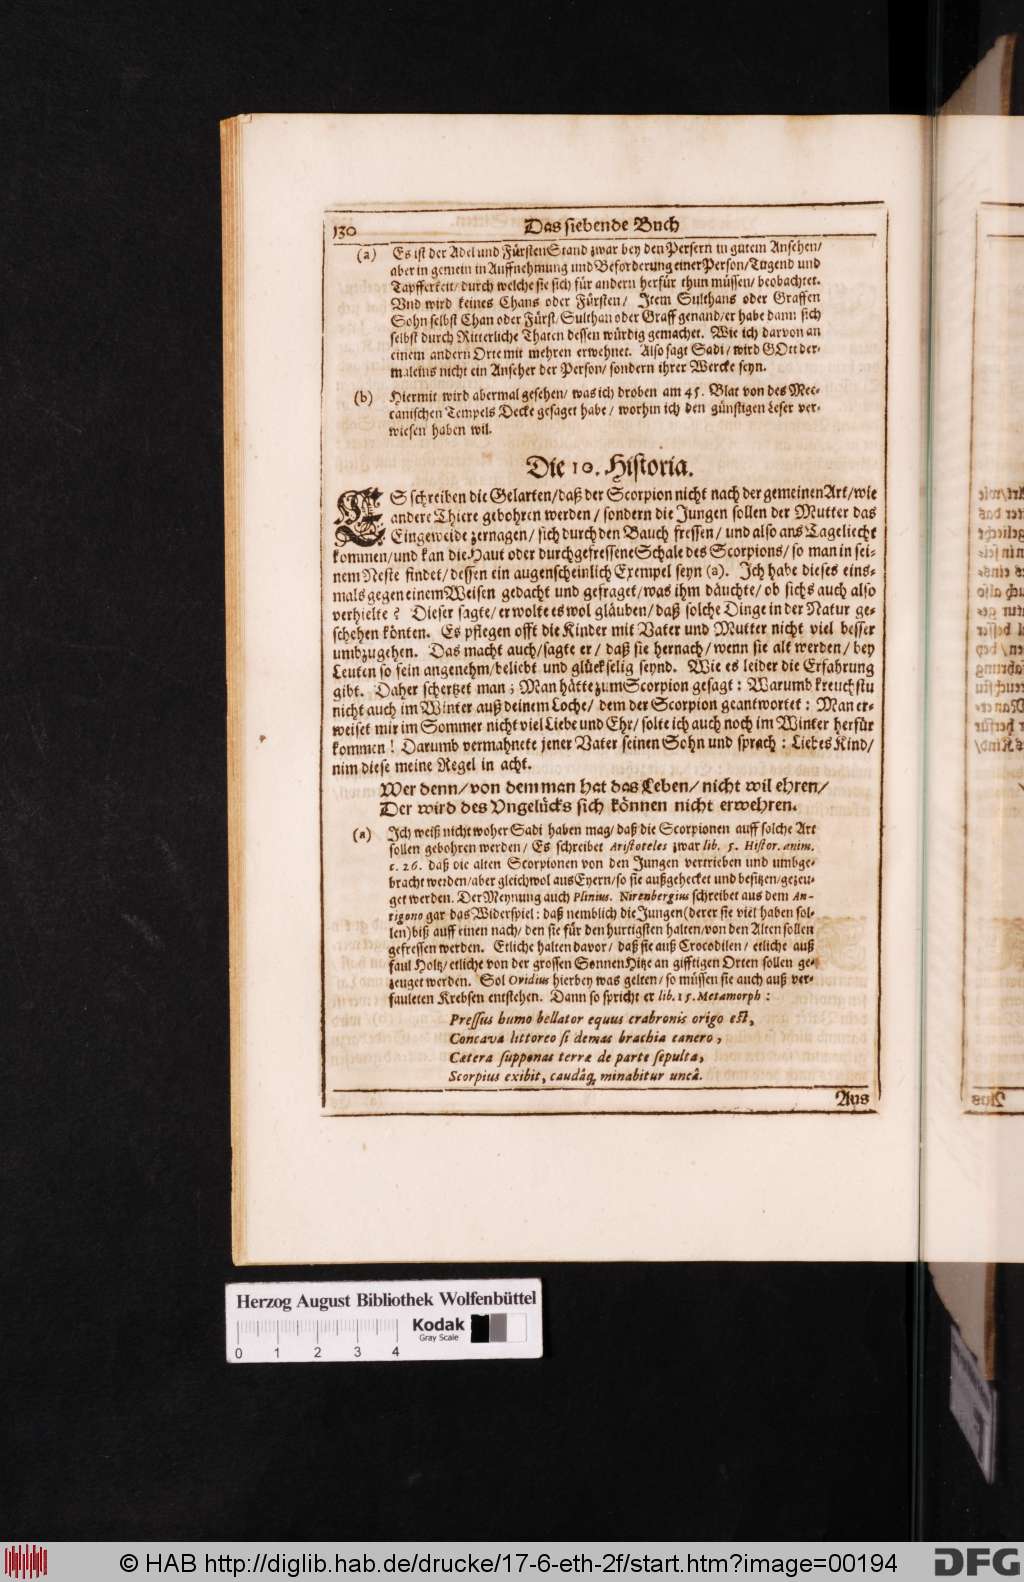 130
Das siebende Buch
(a) Es ist der Adel und FürstenStand zwar bey den Persern in gutem Ansehen/
aber in gemein in Auffnehmung und Beforderung einer Person/ Tugend und
Tapfferkeit/ durch welche sie sich für andern herfür thun müssen/ beobachtet.
Und wird keines Chans oder Fürsten/ Item Sulthans oder Graffen
Sohn selbst Chan oder Fürst/ Sulthan oder Graff genand/ er habe dann sich
selbst durch Ritterliche Thaten dessen würdig gemachet. Wie ich darvon an
einem andern Orte mit mehren erwehnet. Also sagt Sadi/ wird GOtt der-
maleins nicht ein Anseher der Person/ sondern ihrer Wercke seyn.
(b) Hiermit wird abermal gesehen/ was ich droben am 45. Blat von des Mec-
canischen Tempels Decke gesaget habe/ worhin ich den günstigen Leser ver-
wiesen haben wil.
Die 10. Historia.
ES schreiben die Gelarten/ daß der Scorpion nicht nach der gemeinen Art/ wie
andere Thiere gebohren werden/ sondern die Jungen sollen der Mutter das
Eingeweide zernagen/ sich durch den Bauch fressen/ und also ans Tageliecht
kommen/ und kan die Haut oder durchgefressene Schale des Scorpions/ so man in sei-
nem Neste findet/ dessen ein augenscheinlich Exempel seyn (a). Ich habe dieses eins-
mals gegen einem Weisen gedacht und gefraget/ was ihm däuchte/ ob sichs auch also
verhielte? Dieser sagte/ er wolte es wol gläuben/ daß solche Dinge in der Natur ge-
schehen könten. Es pflegen offt die Kinder mit Vater und Mutter nicht viel besser
umbzugehen. Das macht auch/ sagte er/ daß sie hernach/ wenn sie alt werden/ bey
Leuten so fein angenehm/ beliebt und glückselig seynd. Wie es leider die Erfahrung
gibt. Daher schertzet man; Man hätte zum Scorpion gesagt: Warumb kreuchstu
nicht auch im Winter auß deinem Loche/ dem der Scorpion geantwortet: Man er-
weiset mir im Sommer nicht viel Liebe und Ehr/ solte ich auch noch im Winter herfür
kommen! Darumb vermahnete jener Vater seinen Sohn und sprach: Liebes Kind/
nim diese meine Regel in acht.
Wer denn/ von dem man hat das Leben/ nicht wil ehren/
Der wird des Ungelücks sich können nicht erwehren.
(a) Ich weiß nicht woher Sadi haben mag/ daß die Scorpionen auff solche Art
sollen gebohren werden/ Es schreibet Aristoteles zwar lib. 5. Histor. anim.
c. 26. daß die alten Scorpionen von den Jungen vertrieben und umbge-
bracht werden/ aber gleichwol aus Eyern/ so sie außgehecket und besitzen/ gezeu-
get werden. Der Meynung auch Plinius. Nirenbergius schreibet aus dem An-
tigono gar das Widerspiel: daß nemblich die Jungen (derer sie viel haben sol-
len) biß auff einen nach/ den sie für den hurtigsten halten/ von den Alten sollen
gefressen werden. Etliche halten davor/ daß sie auß Crocodilen/ etliche auß
faul Holtz/ etliche von der grossen SonnenHitze an gifftigen Orten sollen ge-
zeuget werden. Sol Ovidius hierbey was gelten/ so müssen sie auch auß ver-
fauleten Krebsen entstehen. Dann so spricht er lib. 15. Metamorph:
Pressus humo bellator equus crabronis origo est,
Concava littoreo si demas brachia cancro,
Cætera supponas terræ de parte sepulta,
Scorpius exibit, caudâq; minabitur uncâ.
Aus
Herzog August Bibliothek Wolfenbüttel
Kodak
Gray Scale
0 1 2 3 4
© HAB http://diglib.hab.de/drucke/17-6-eth-2f/start.htm?image=00194
DFG